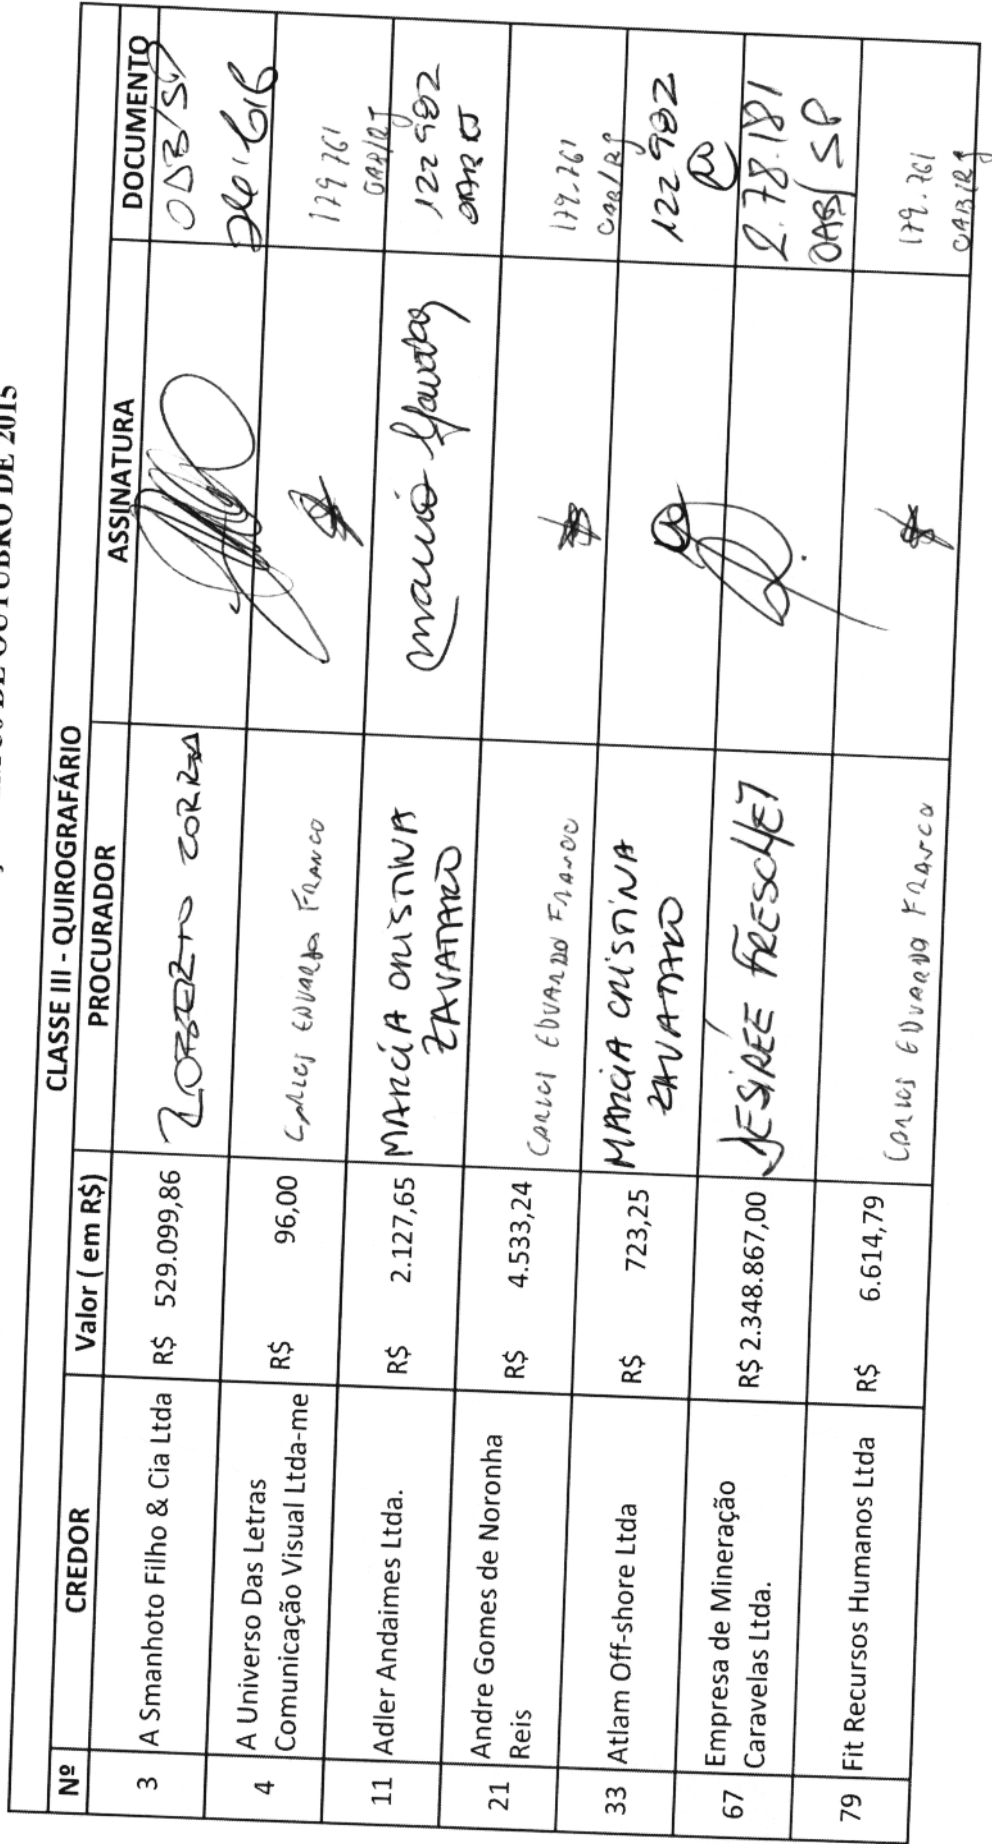 DE OUTUBRO DE 2015
CLASSE III - QUIROGRAFÁRIO
Nº CREDOR Valor ( em R$) PROCURADOR ASSINATURA DOCUMENTO
3 A Smanhoto Filho & Cia Ltda R$ 529.099,86 OAB/SP
4 A Universo Das Letras
Comunicação Visual Ltda-me R$ 96,00 CARLOS EDUARDO FRANCO 179761
OAB/RJ
11 Adler Andaimes Ltda. R$ 2.127,65 MARCIA CRISTINA
ZAVATARO 122982
OAB RJ
21 Andre Gomes de Noronha
Reis R$ 4.533,24 CARLOS EDUARDO FRANCO 179.761
OAB/RJ
33 Atlam Off-shore Ltda R$ 723,25 MARCIA CRISTINA
ZAVATARO 122982
67 Empresa de Mineração
Caravelas Ltda. R$ 2.348.867,00 DESIRÉE FRESCHET 278.181
OAB/SP
79 Fit Recursos Humanos Ltda R$ 6.614,79 CARLOS EDUARDO FRANCO 179.761
OAB/RJ